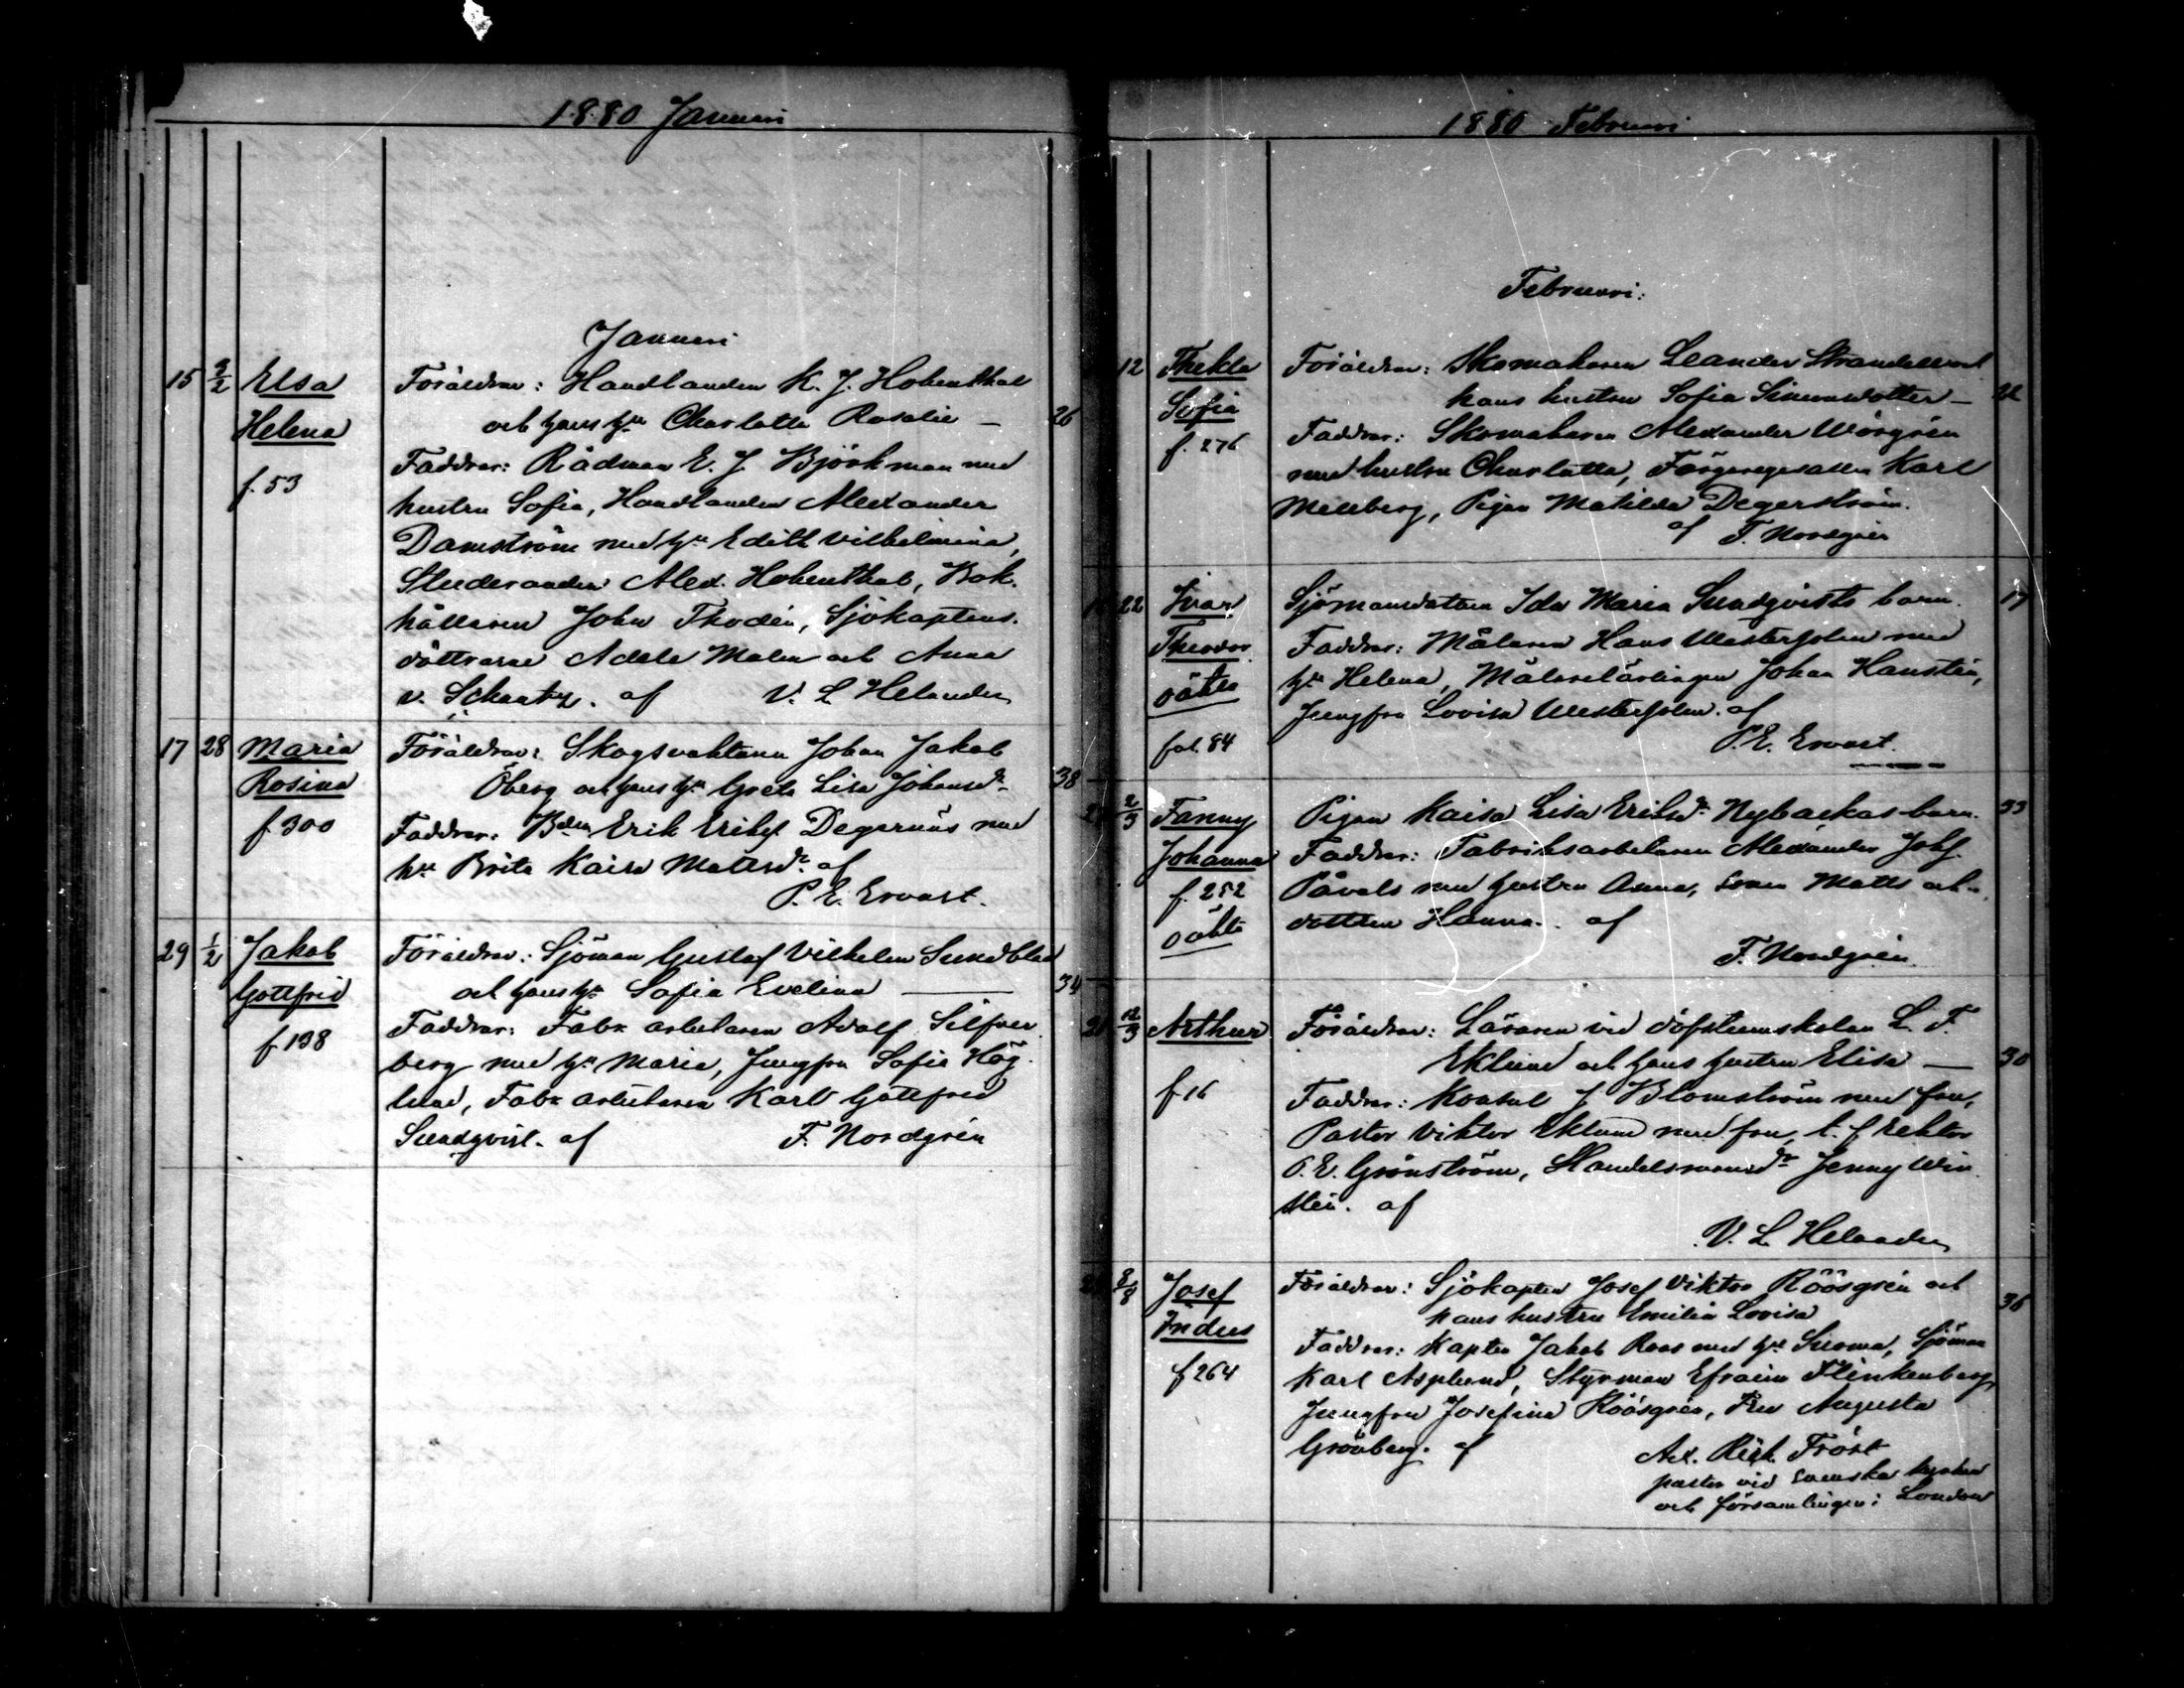 1880 Januari
Januari
15 3/2 Elsa Föräldrar: Handlanden K. J. Hohenthal
Helena och hans h:u Charlotta Rosalie – 26
f. 53 Faddrar: Rådman E. J. Björkman med
hustru Sofia, Handlanden Alexander
Damström med h:u Edith Vilhelmina,
Studeranden Alex. Hohenthal, Bok-
hållaren John Thodén, Sjökaptens-
döttrarne Adele Malm och Anna
v. Schantz. af V. L Helander
17 28 Maria Föräldrar: Skogsvaktaren Johan Jakob
Rosina Öberg och hans h:u Greta Lisa Johansd:r 38
f 300 Faddrar: Erik Degernäs med
h:u Brita Kaisa Mattsd:r af
P. E. Ervast.
29 1/2 Jakob Föräldrar: Sjöman Gustaf Vilhelm Sundblad
Gottfrid och hans h:u Sofia Evelina – 34
f 138 Faddrar: Fabr. arbetaren Adolf Silfver
berg med h:u Maria, Jungfru Sofia Hög
lund, Fabr. arbetaren Karl Gottfrid
Sundqvist. af F. Nordgrén
1880 Februari
Februari:
12 Thekla Föräldrar: Skomakaren Leander Strandell och
Sofia hans hustru Sofia Simonsdotter –
f. 276 Faddrar: Skomakaren Alexander Wörgrén
med hustru Charlotta, Färgeregesällen Karl
Mellberg, Pigan Matilda Degerström.
af F. Nordgrén
22 Ivar Sjömansdottern Ida Maria Sundqvists barn. 17
Theodor Faddrar: Målaren Hans Westerholm med
oäkta h:u Helena, Målarelärlingen Johan Hanstén,
Jungfru Lovisa Westerholm. af
fol. 84 P. E. Ervast.
2/3 Fanny Pigan Kaisa Lisa Eriksd:r Nybackas barn. 33
Johanna Faddrar: Fabriksarbetaren Alexander Johs.
f. 252 Påvals med hustru Anna, sonen Matts och
oäkta dottern Hanna. af
F. Nordgrén
12/3 Arthur Föräldrar: Läraren vid döfstumskolan L. F.
Eklund och hans hustru Elisa – 30
f 16 Faddrar: Konsul J Blomström med fru,
Pastor Viktor Eklund med fru, t. f rektor
P. E. Grönström, Handelsmansd:r Jenny Win
tén. af
V. L Helander
8/8 Josef Föräldrar: Sjökapten Josef Viktor Röösgrén och
Indus hans hustru Emilia Lovisa 36
Faddrar: Kapten Jakob Roos med h:u Susanna, Sjöman
f 264 Karl Asplund, Styrman Efraim Flinkenberg
Jungfru Josefina Röösgrén, Fru Augusta
Grönberg. af Ax. Rich. Fröst
pastor vid svenska kyrkan
och församlingen i London